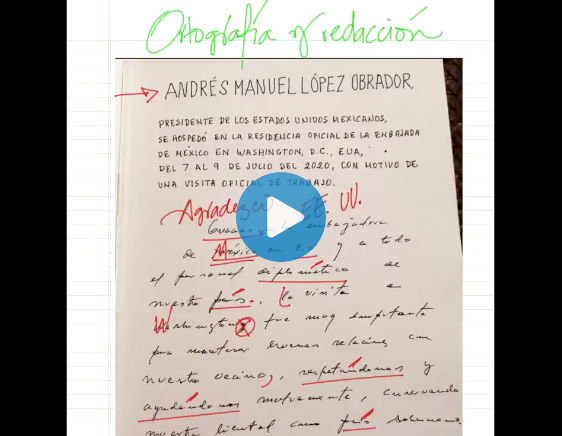 Ortografía y redacción
ANDRÉS MANUEL LÓPEZ OBRADOR,
PRESIDENTE DE LOS ESTADOS UNIDOS MEXICANOS,
SE HOSPEDÓ EN LA RESIDENCIA OFICIAL DE LA EMBAJADA
DE MÉXICO EN WASHINGTON, D.C., EUA,
DEL 7 AL 9 DE JULIO DEL 2020, CON MOTIVO DE
UNA VISITA OFICIAL DE TRABAJO.
EE. UU.
embajadora
de México en y a todo
el personal diplomático de
nuestro país. La visita a
Washington fue muy importante
para mantener buenas relaciones con
nuestro vecino, respetándonos y
ayudándonos mutuamente, conservando
nuestra libertad como país soberano.